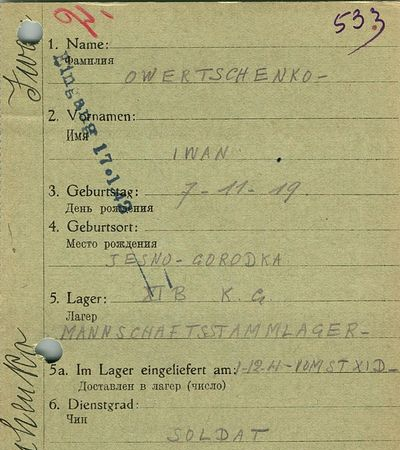 533
1. Name:
Фамилия
OWERTSCHENKO-
2. Vornamen:
Имя
IWAN
3. Geburtstag: 7-11-19.
День рождения
4. Geburtsort:
Место рождения
JESNO-GORODKA
5. Lager: XI B K. G.
Лагерь
MANNSCHAFTSSTAMMLAGER-
5a. Im Lager eingeliefert am:
Доставлен в лагерь (число)
6. Dienstgrad:
Чин
SOLDAT
Eingang 17.1.42
Iwa